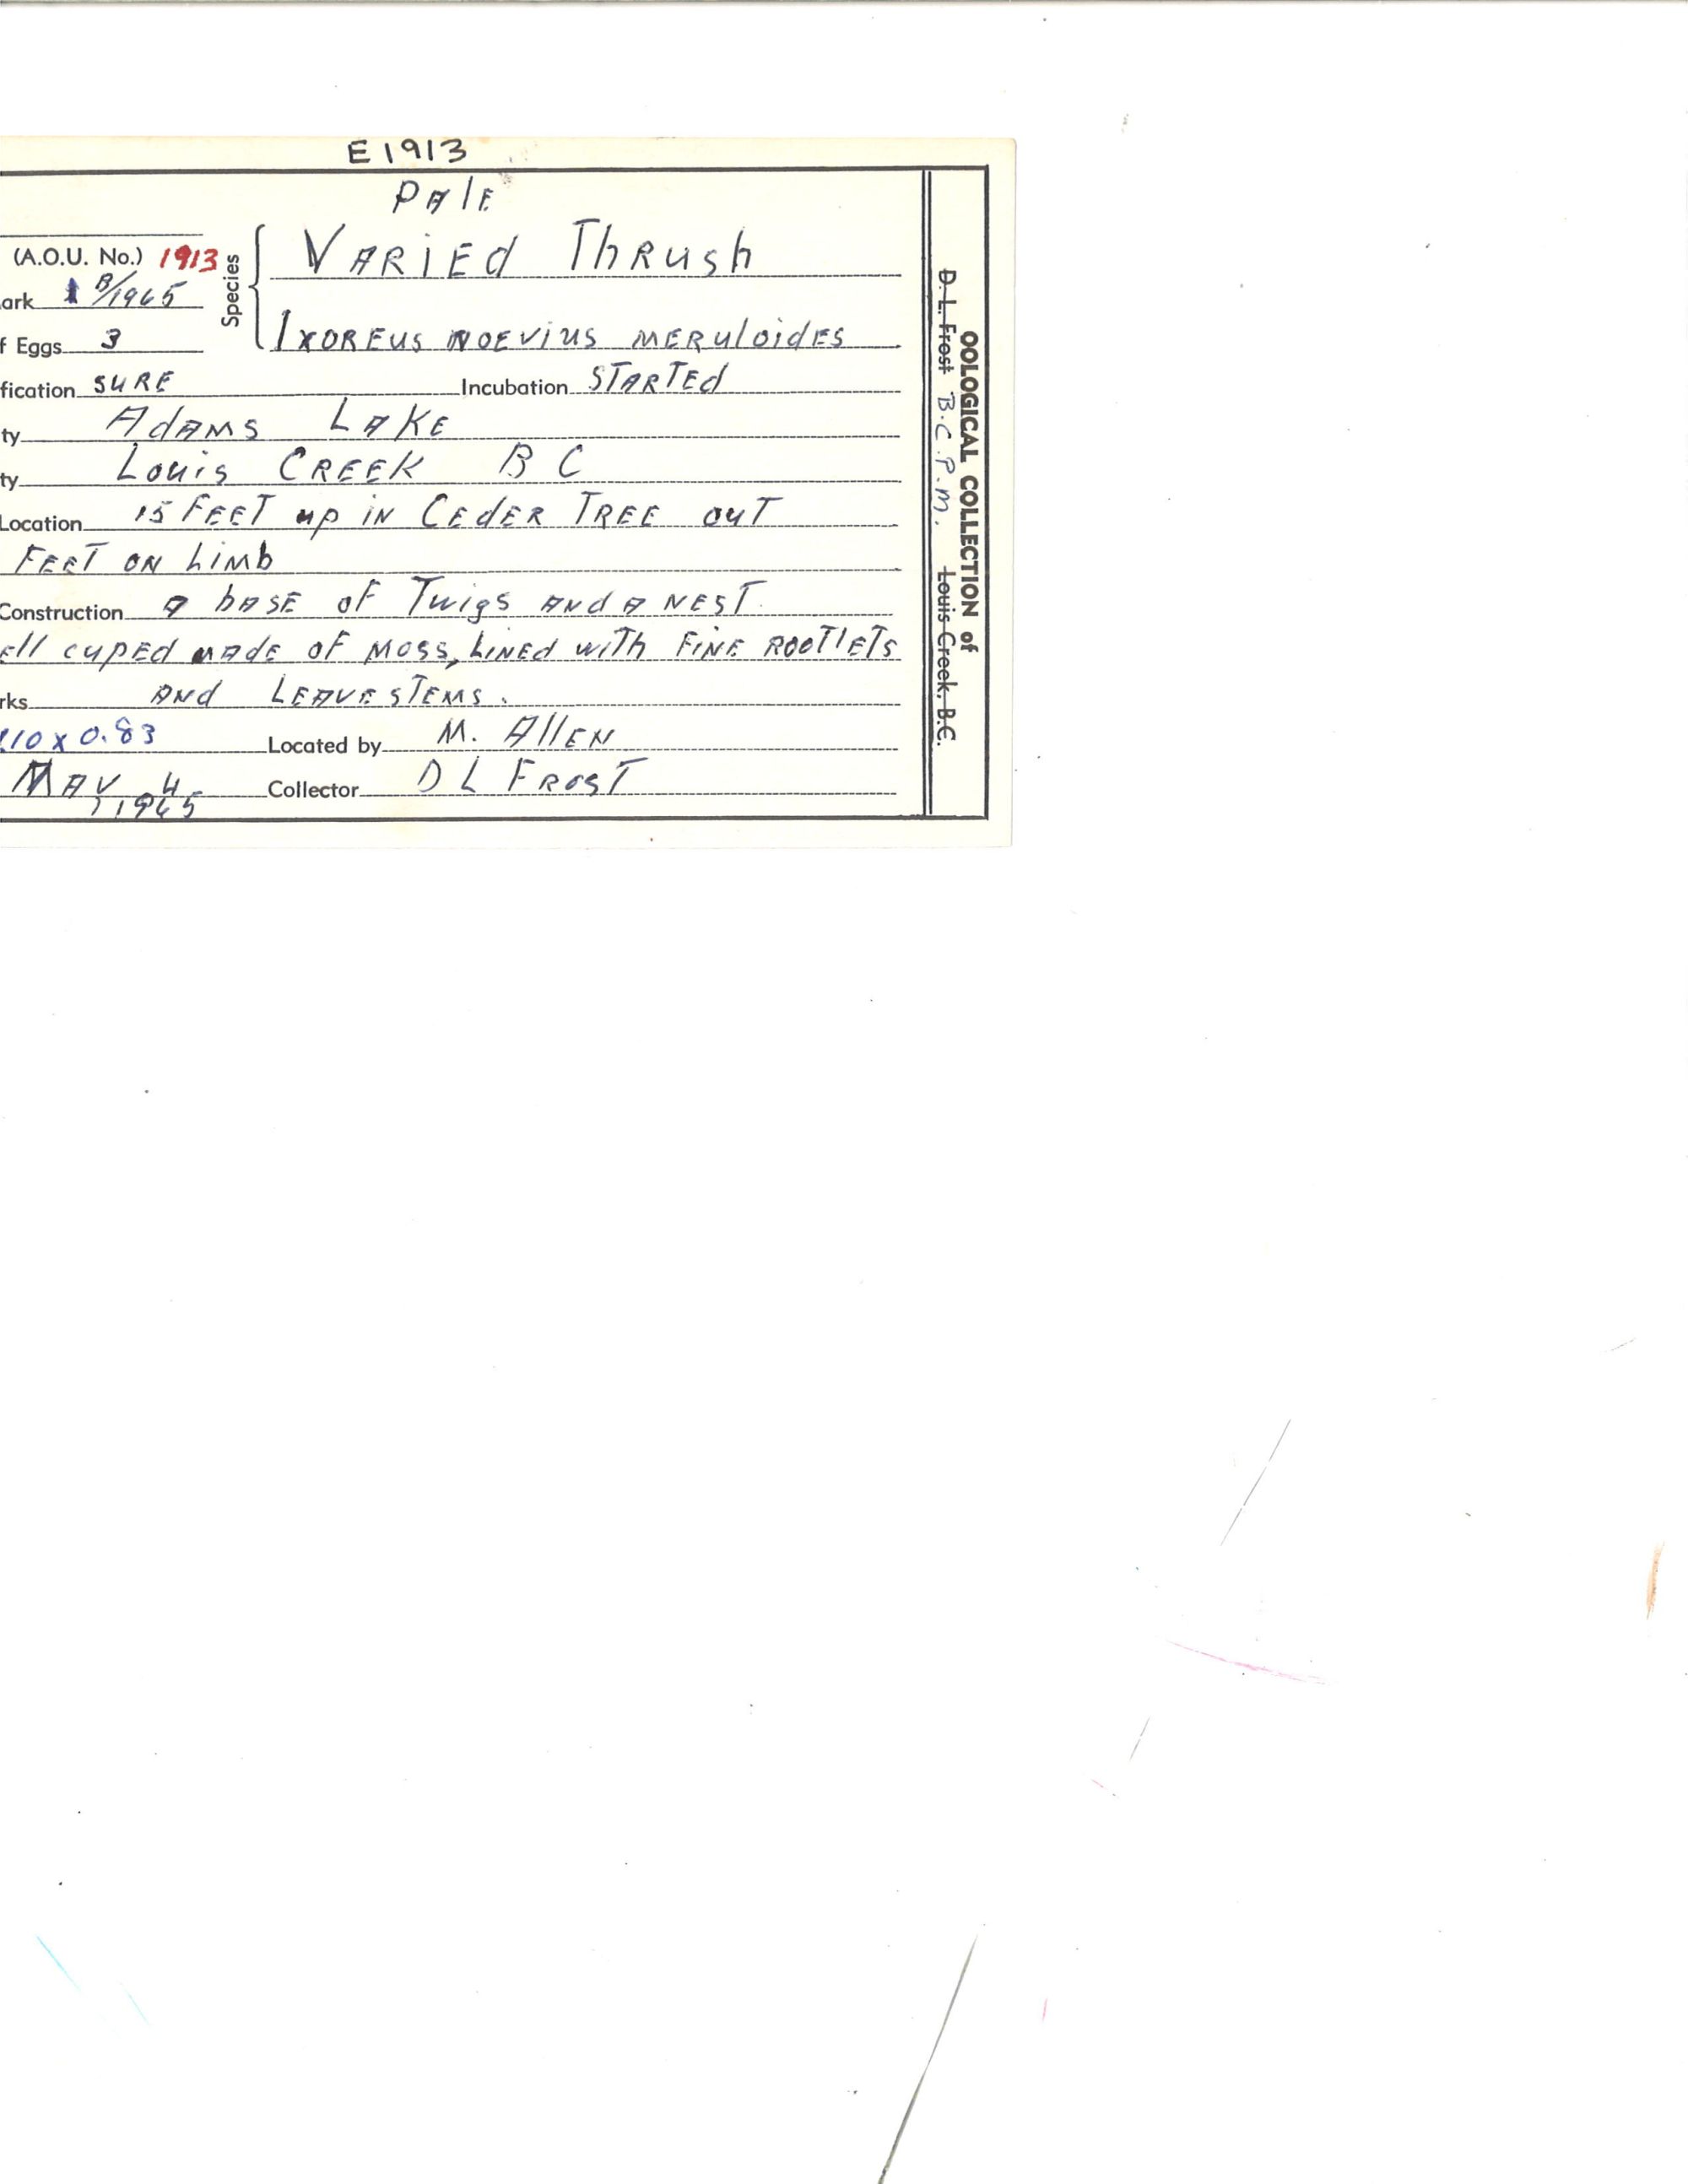 E1913
PAlE
(A.O.U. No.) 1913 Species VARiEd ThRush
ark 1 B/1965
f Eggs 3 IXOREus NOEViUS MERuloidES
fication SURE Incubation STARTEd
ty AdAMS LAKE
ty Louis CREEK B C
Location 15 FEET up iN CEdER TREE ouT
FEET ON LiMb
Construction A bASE oF Twigs ANd A NEST
ell cupEd MAdE oF Moss, LiNEd wiTh FiNE ROOTlETs
rks ANd LEAVE STEMS.
.10 x 0.83 Located by M. AllEN
MAY 4 Collector D L FROST
, 1965
OOLOGICAL COLLECTION of
D. L. Frost B.C.P.M. Louis Creek, B.C.